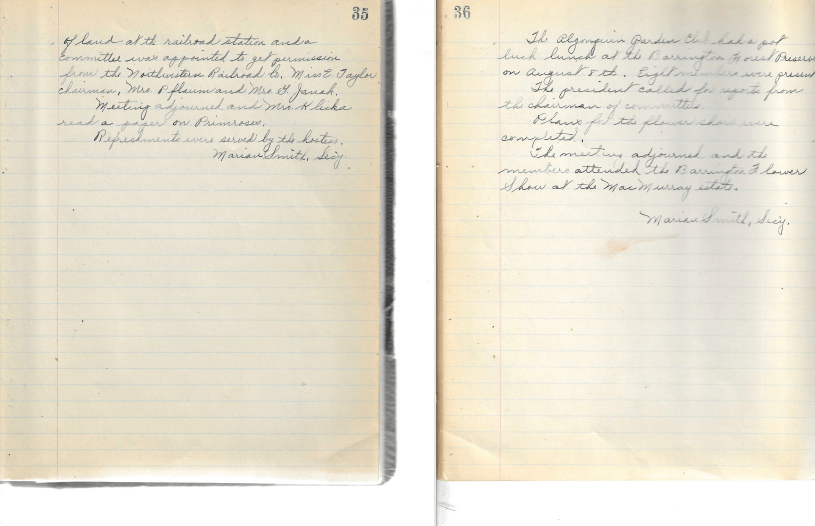 35
of land at the railroad station and a
committee was appointed to get permission
from the Northwestern Railroad Co. Miss E. Taylor
chairman, Mrs. Pflaum and Mrs. G. Janak.
Meeting adjourned and Mrs. Klicka
read a paper on Primroses.
Refreshments were served by the hostess.
Marian Smith, Secy.
36
The Algonquin Garden Club had a pot
luck lunch at the Barrington Forest Preserve
on August 8th. Eight members were present
The president called for reports from
the chairman of committees.
Plans for the flower show were
completed.
The meeting adjourned and the
members attended the Barrington Flower
Show at the MacMurray estate.
Marian Smith, Secy.